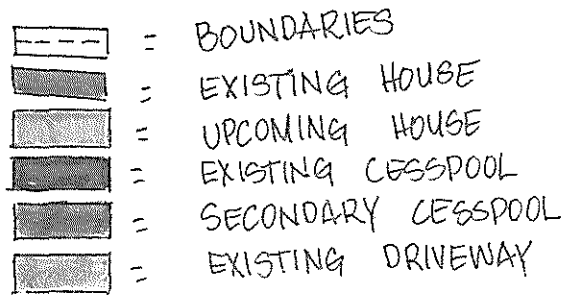 = BOUNDARIES
= EXISTING HOUSE
= UPCOMING HOUSE
= EXISTING CESSPOOL
= SECONDARY CESSPOOL
= EXISTING DRIVEWAY